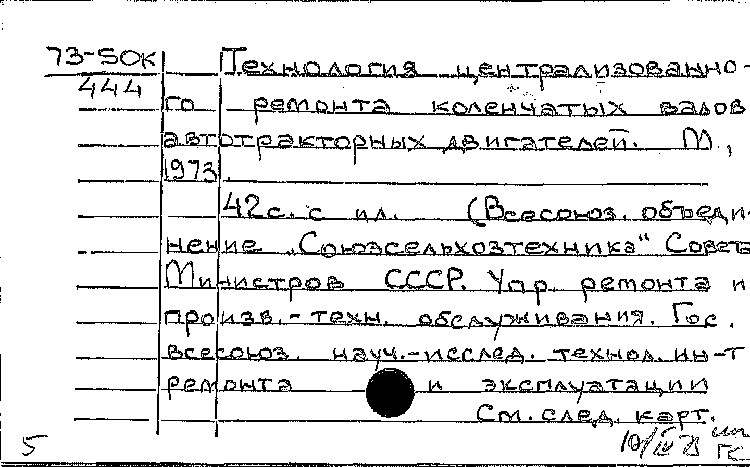 73-5OK Технология централизованно-
444 го ремонта коленчатых валов
автотракторных двигателей. М.,
1973.
42с. с ил. (Всесоюз. объеди-
нение „Союзсельхозтехника“ Совета
Министров СССР. Упр. ремонта и
произв.-техн. обслуживания. Гос.
всесоюз. науч.-исслед. технол. ин-т
ремонта и эксплуатации
См. след. карт.
5